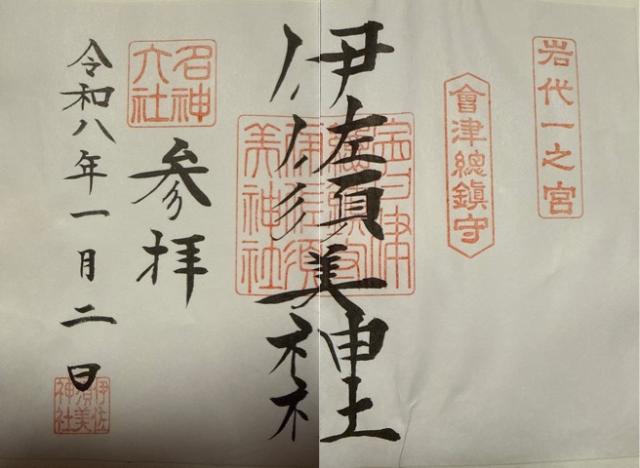 岩代一之宮
會津總鎮守
伊佐須美神社
伊佐須
美神社
名神
大社
参拝
令和八年一月二日
伊佐
須美
神社